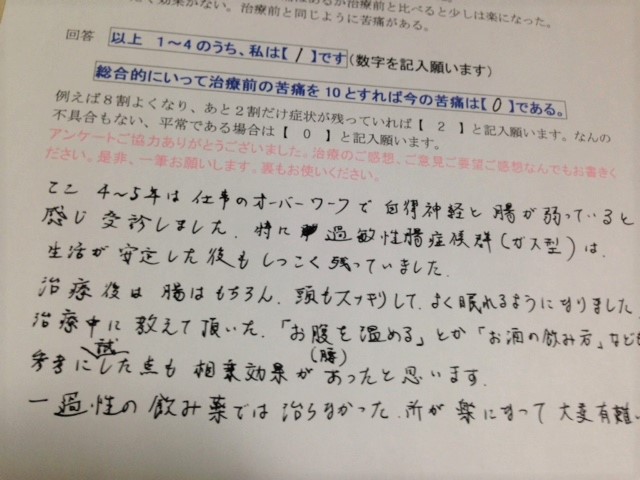 効果がない。治療前と同じように苦痛がある。
はあるが治療前と比べると少しは楽になった。
回答 以上 1~4のうち、私は【 1 】です(数字を記入願います)
総合的にいって治療前の苦痛を10とすれば今の苦痛は【 0 】である。
例えば8割よくなり、あと2割だけ症状が残っていれば【 2 】と記入願います。なんの
不具合もない、平常である場合は【 0 】と記入願います。
アンケートご協力ありがとうございました。治療のご感想、ご意見ご要望ご感想なんでもお書きく
ださい。是非、一筆お願いします。裏もお使いください。
ここ 4~5年は 仕事のオーバーワークで 自律神経と 腸が弱っていると
感じ 受診しました。特に 過敏性腸症候群(ガス型)は、
生活が 安定した後も しつこく 残っていました。
治療後は 腸はもちろん、頭もスッキリして、よく眠れるようになりました
治療中に 教えて頂いた、「お腹を温める」とか「お酒の飲み方」なども
(腰)
参考に試した点も 相乗効果があったと思います。
一過性の飲み薬では 治らなかった 所が 楽になって 大変有難い